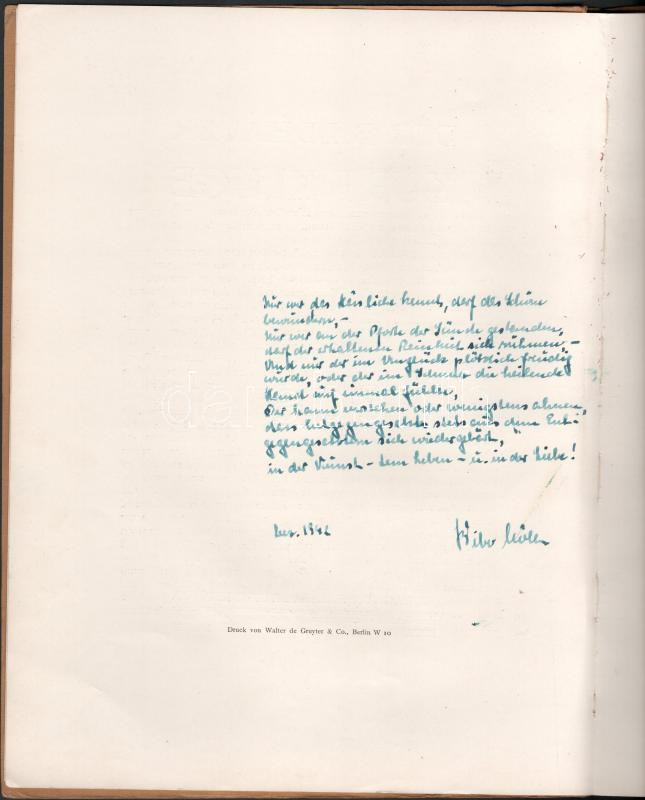 Nur wer das Hässliche kennt, darf das Schöne
bewundern, –
Nur wer an der Pforte der Sünde gestanden,
darf der erhaltenen Reinheit sich rühmen, –
Und nur der im Unglück plötzlich freudig
wurde, oder der im Schmerz die heilende
auf einmal fühlte,
Der kann verstehen oder wenigstens ahnen,
dass Entgegengesetzte stets aus dem Ent-
gegengesetzten sich wiedergebärt,
in der Kunst – dem Leben – u. in der Liebe!
1942
Druck von Walter de Gruyter & Co., Berlin W 10